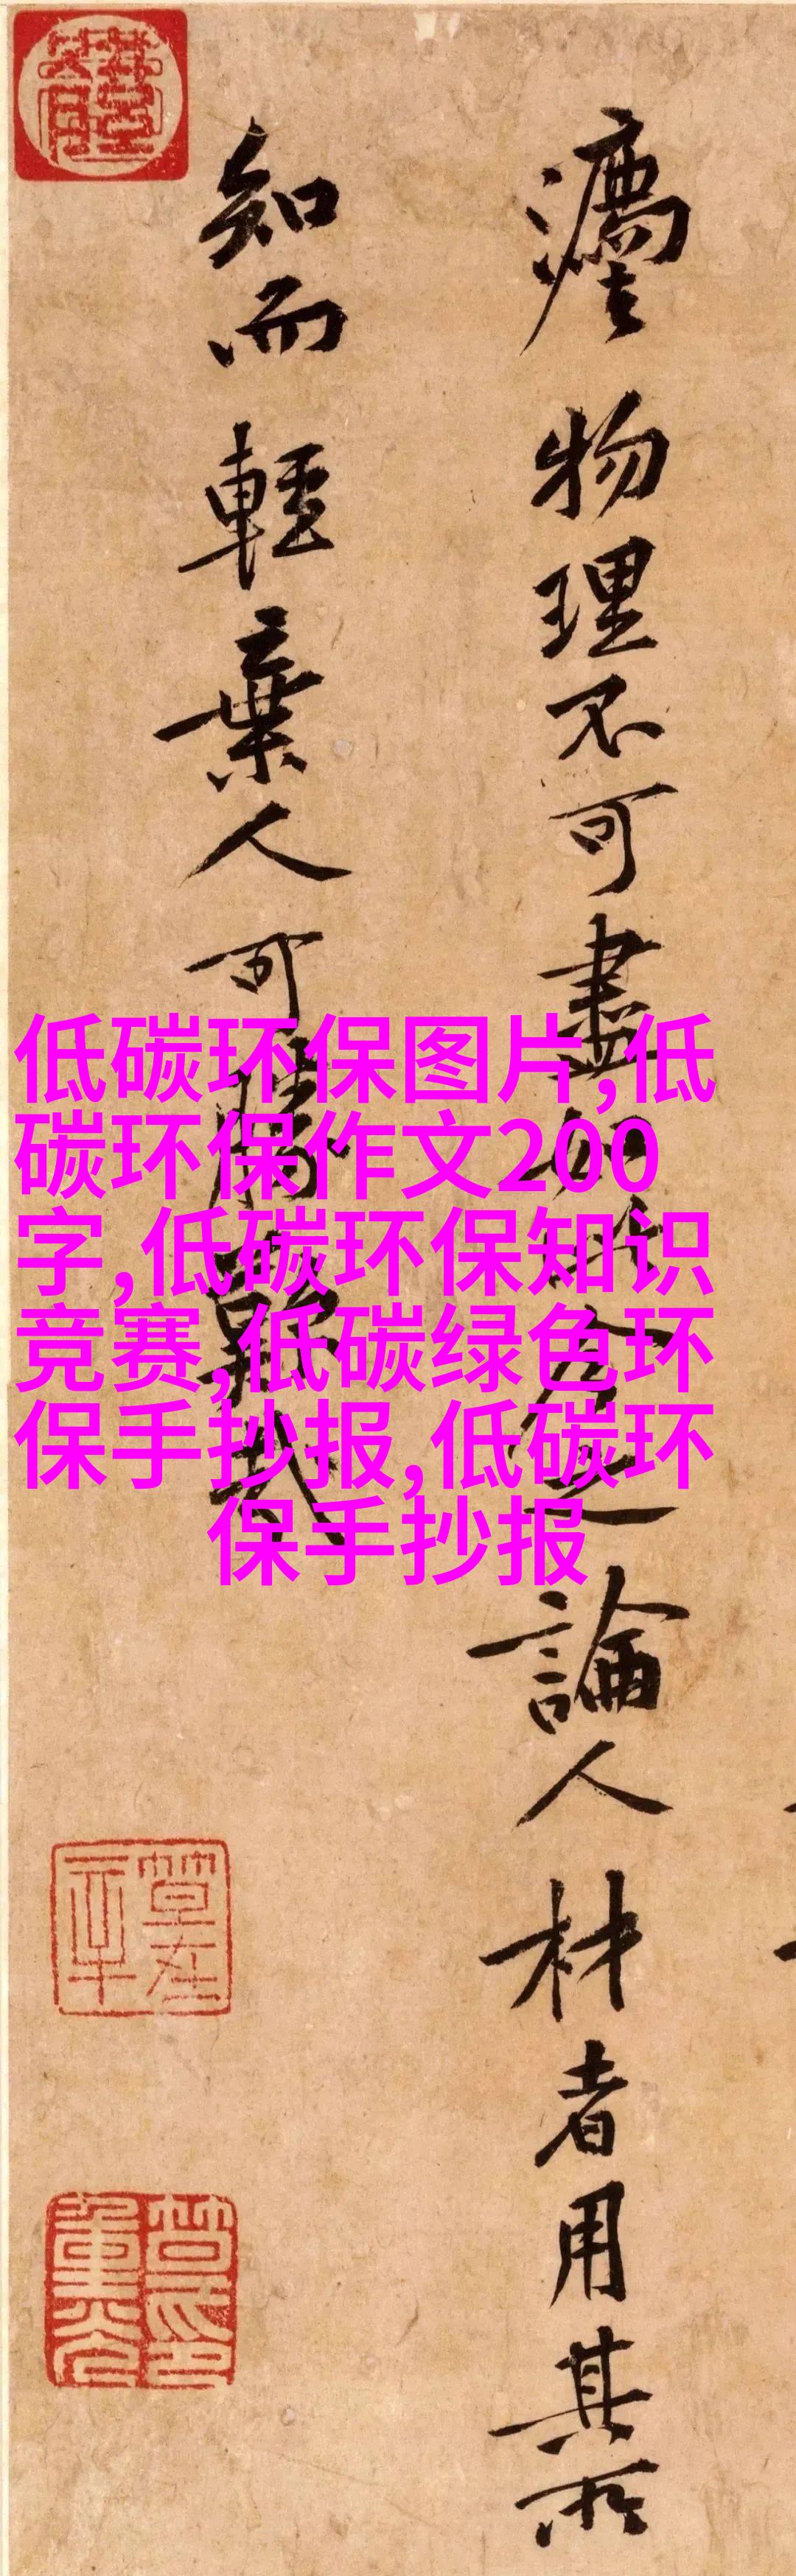 物理不可盡如此今之論人材者用其所
知而輕棄人可勝歎哉
低碳环保图片,低
碳环保作文200
字,低碳环保知识
竞赛,低碳绿色环
保手抄报,低碳环
保手抄报